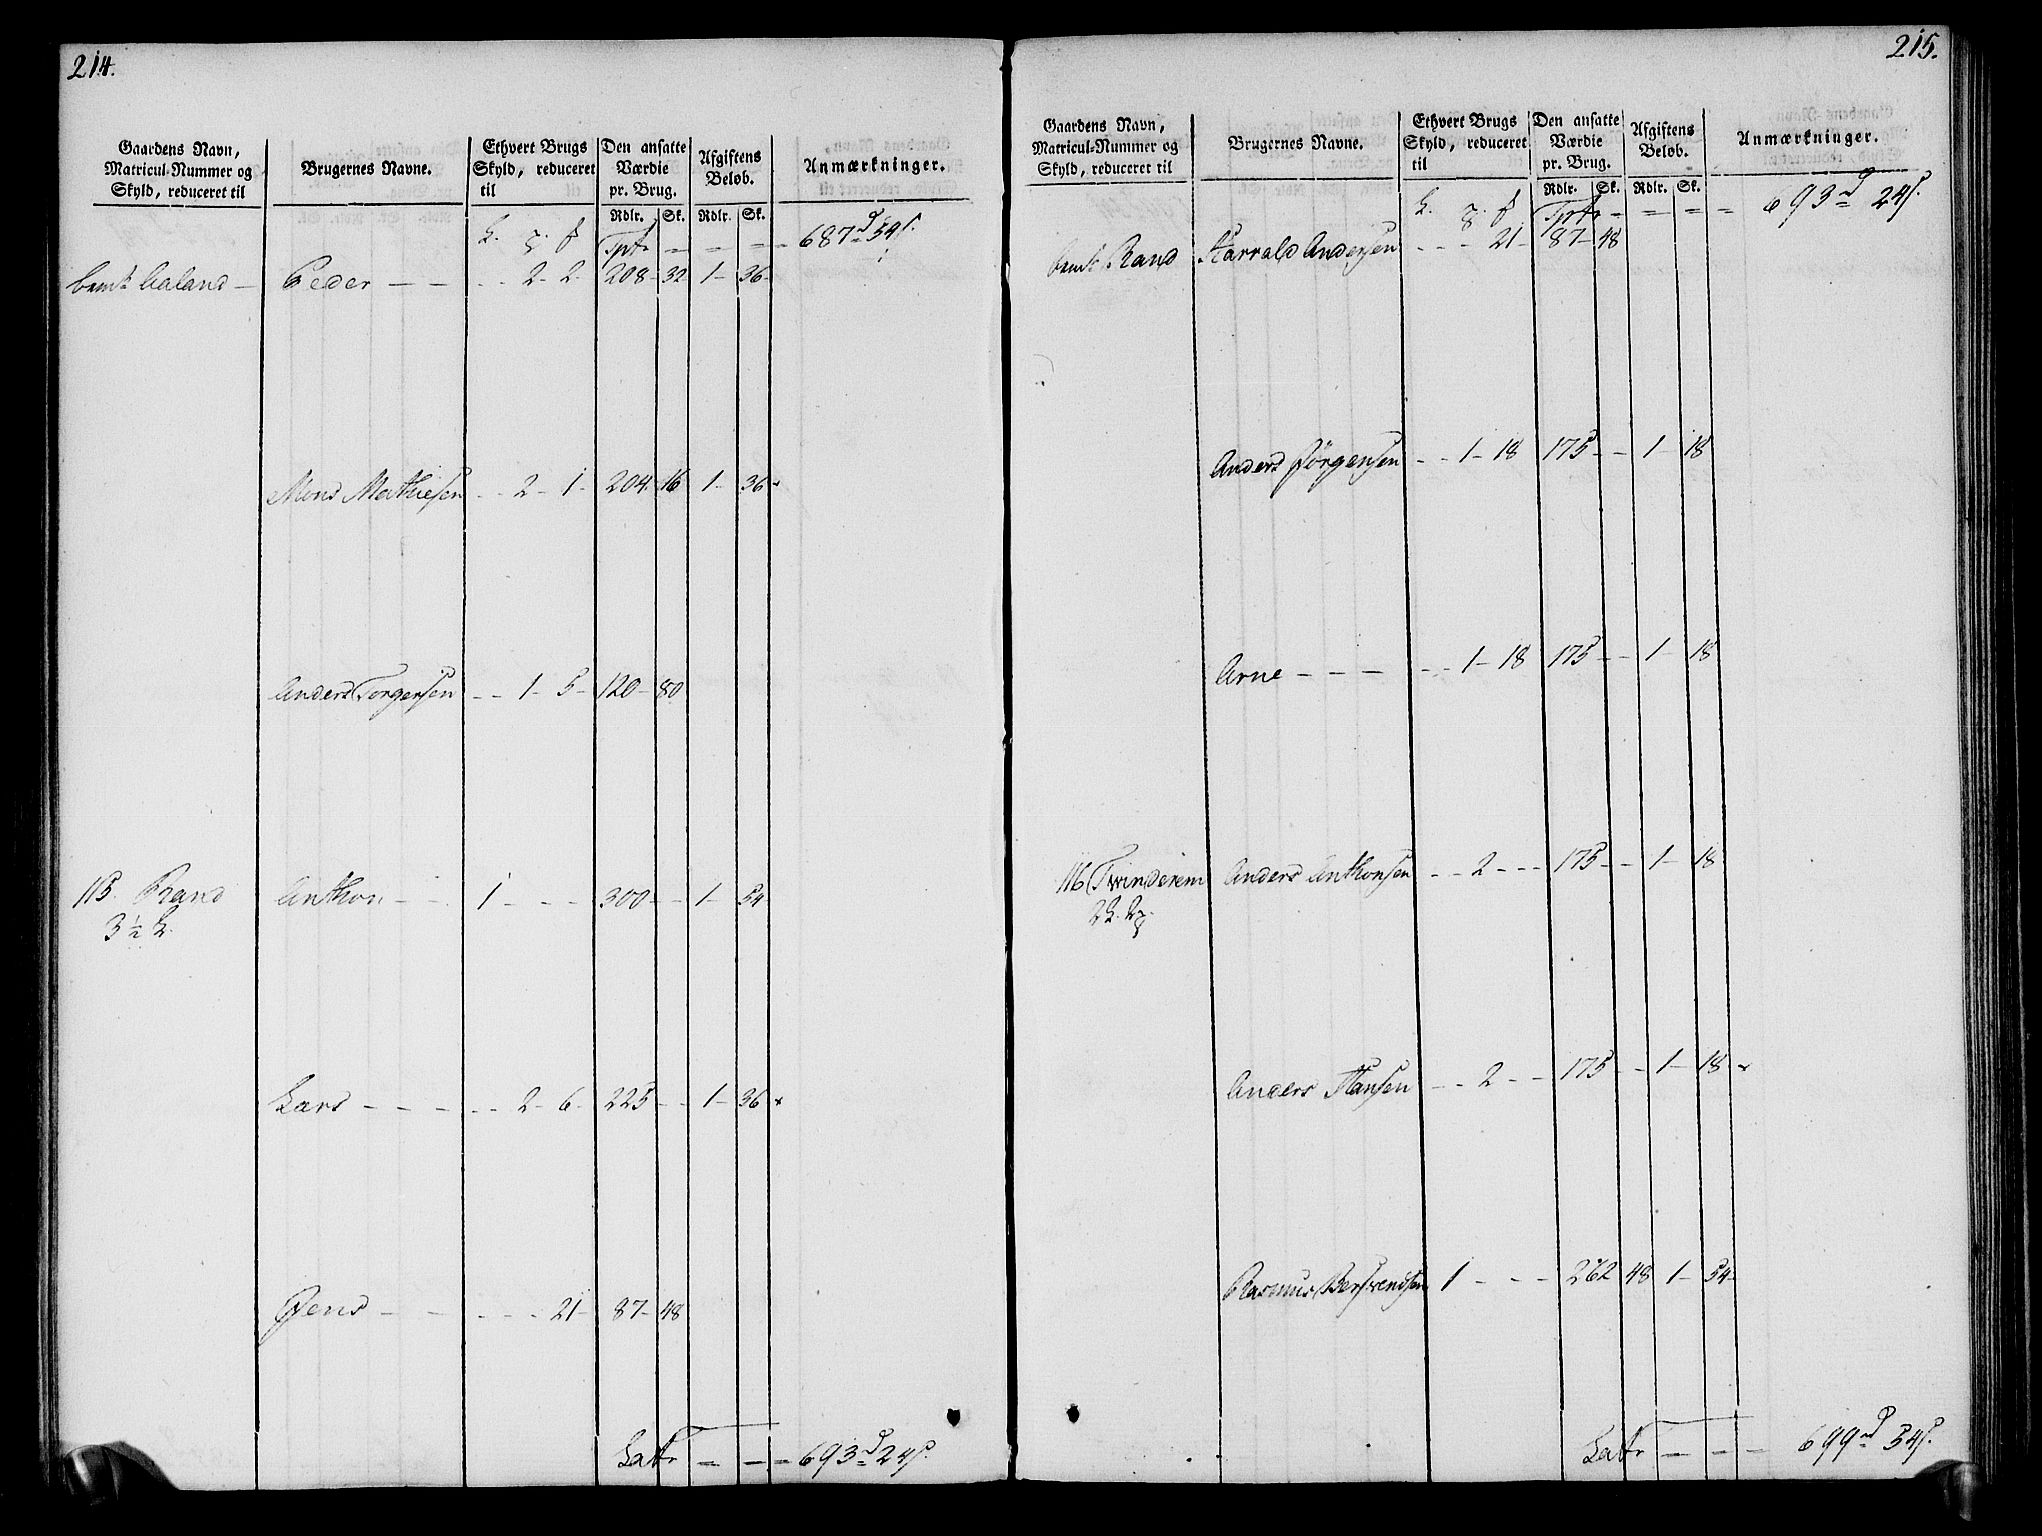 214.
Gaardens Navn, Matricul-Nummer og Skyld, reduceret til | Brugernes Navne. | Ethvert Brugs Skyld, reduceret til | Den ansatte Værdie pr. Brug. Rdlr. Sk. | Afgiftens Beløb. Rdlr. Sk. | Anmærkninger.
Tptr – – – – 687 d 54 s.
Aaland – Peder – – – – 2 – 2 – 208 – 32 1 – 36 –
Mons Mathiesen – – 2 – 1 – 204. 16 1 – 36 –
Anders Torgersen – – 1 – 5 – 120 – 80
115. Rand Anthon – – 1 – – – 300 – – 1 – 54
3 1/2
Lars – – – – – 2 – 6 – 225 – – 1 – 36 x
Jens – – – – – 21 – 87 – 48
Latr – – – 693 d 24 s.
215.
Gaardens Navn, Matricul-Nummer og Skyld, reduceret til | Brugernes Navne. | Ethvert Brugs Skyld, reduceret til | Den ansatte Værdie pr. Brug. Rdlr. Sk. | Afgiftens Beløb. Rdlr. Sk. | Anmærkninger.
Tptr – – – – 693 d 24 s.
Rand Harrald Andersen – – – 21 – 87 – 48
Anders Jörgensen – – 1 – 18 175 – – 1 – 18
Arne – – – – – 1 – 18 175 – – 1 – 18
116 Twinderem Anders Anthonsen – – 2 – – – 175 – – 1 – 18
Anders Hansen – – 2 – – 175 – – 1 – 18 x
Rasmus Berswendsen 1 – – – 262 48 1 – 54 –
Latr – – – 699 d 54 s.